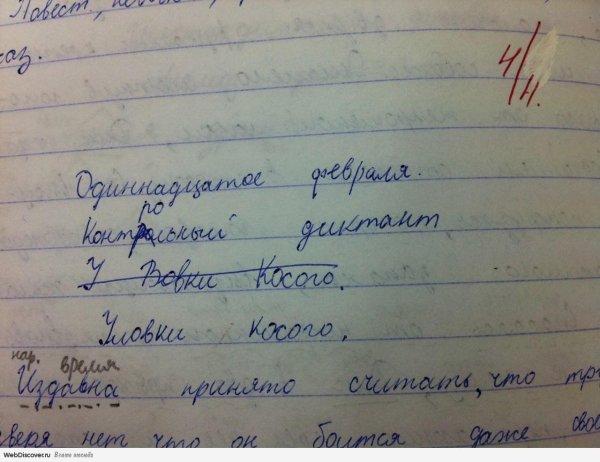 Повест,
каз.
4/4.
Одиннадцатое февраля.
ро
Контрольный диктант
У Вовки Косого.
Уловки косого.
нар. время
Издавна принято считать, что тр
зверя нет что он боится даже сво
WebDiscover.ru В плане отсюда